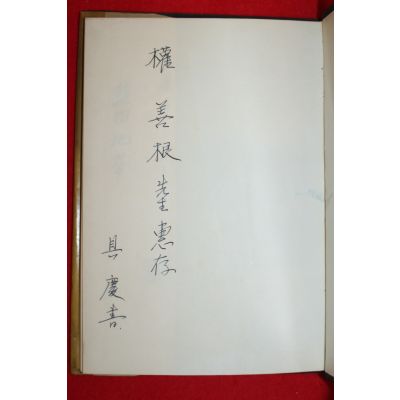 權善根先生惠存
具慶書